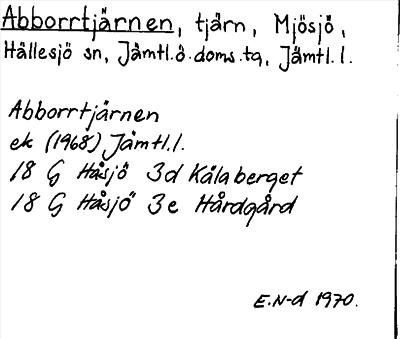 Abborrtjärnen, tjärn, Mjösjö,
Hällesjö sn, Jämtl.ö.doms.tg, Jämtl.l.
Abborrtjärnen
ek (1968) Jämtl.l.
18 G Håsjö 3d Kälaberget
18 G Håsjö 3e Hårdgård
E.N-d 1970.